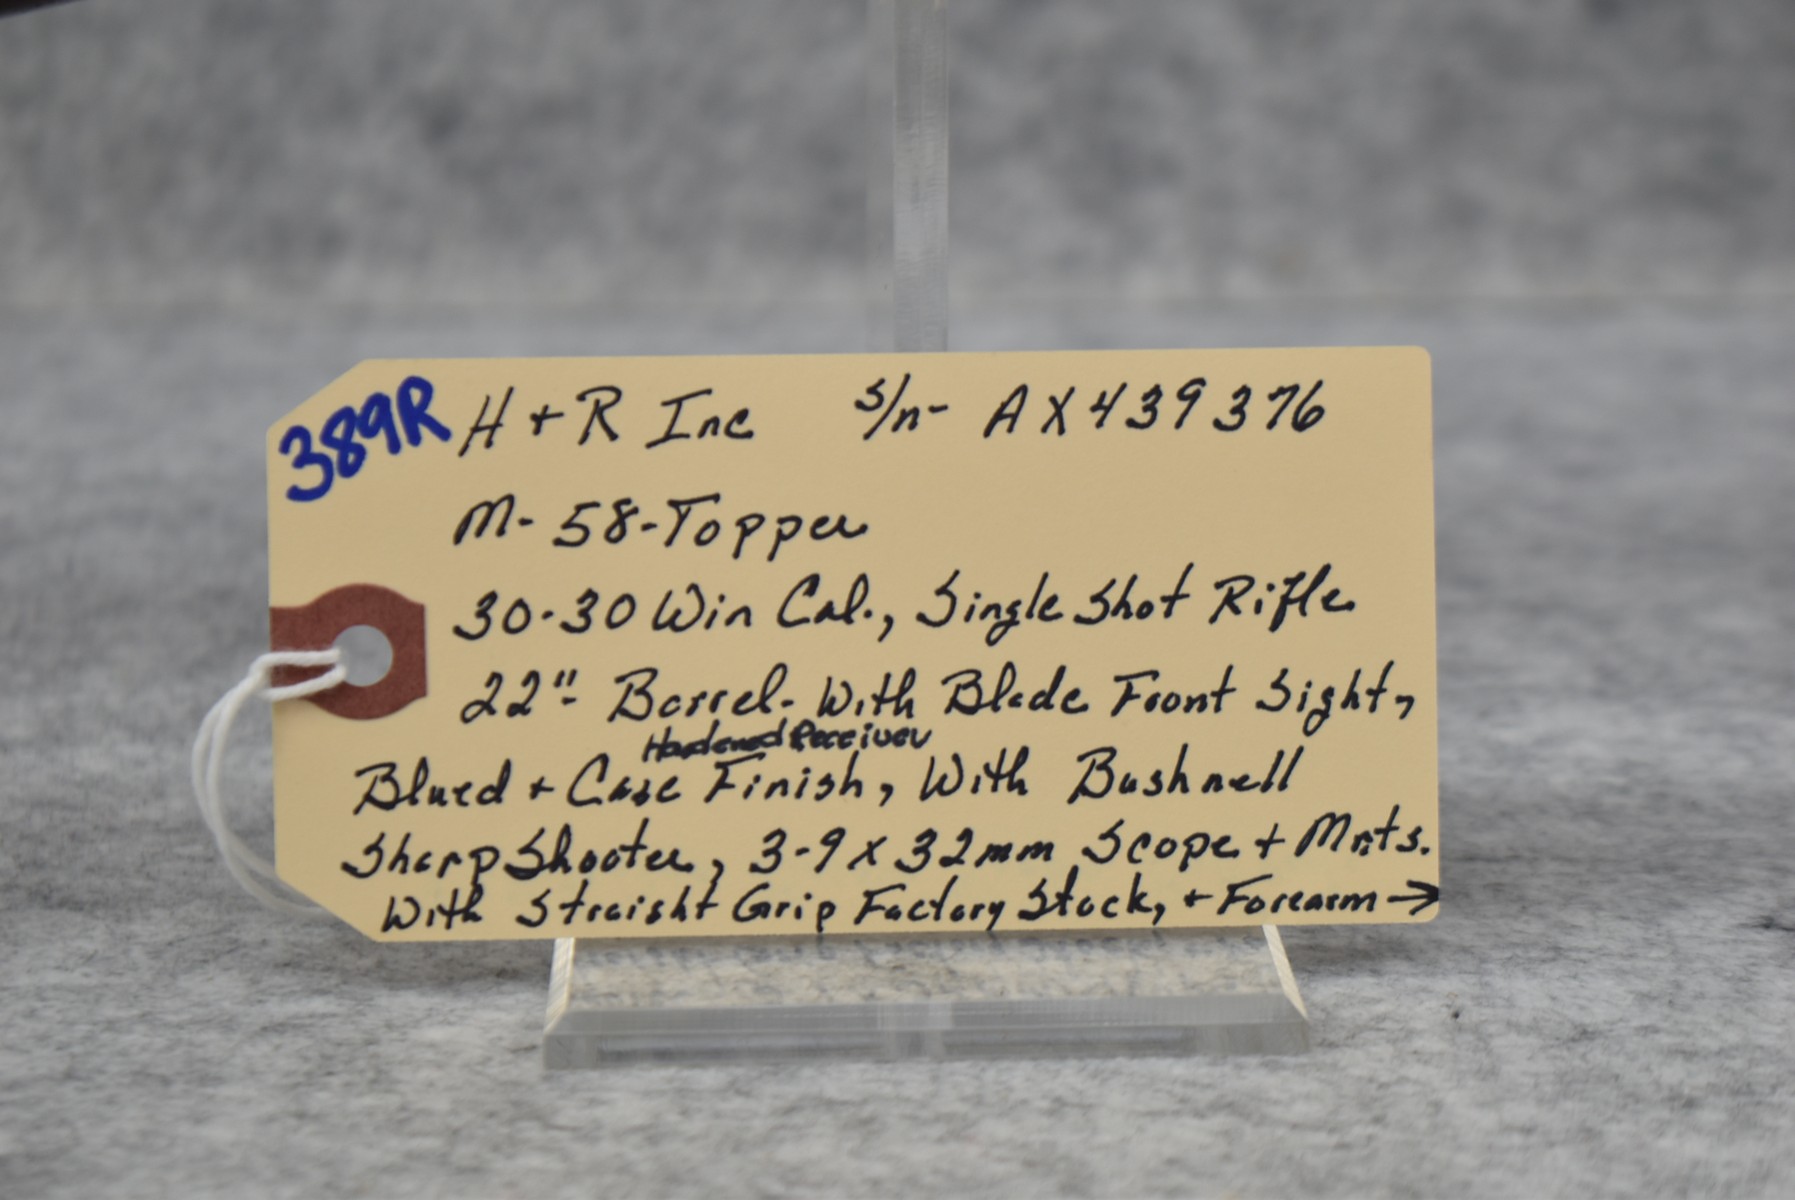 389R H + R Inc s/n- AX439376
M-58-Topper
30-30 Win Cal., Single Shot Rifle
22"- Barrel- With Blade Front Sight,
Hardened Receiver
Blued + Case Finish, With Bushnell
Sharp Shooter, 3-9 x 32mm Scope + Mnts.
With Straight Grip Factory Stock, + Forearm →